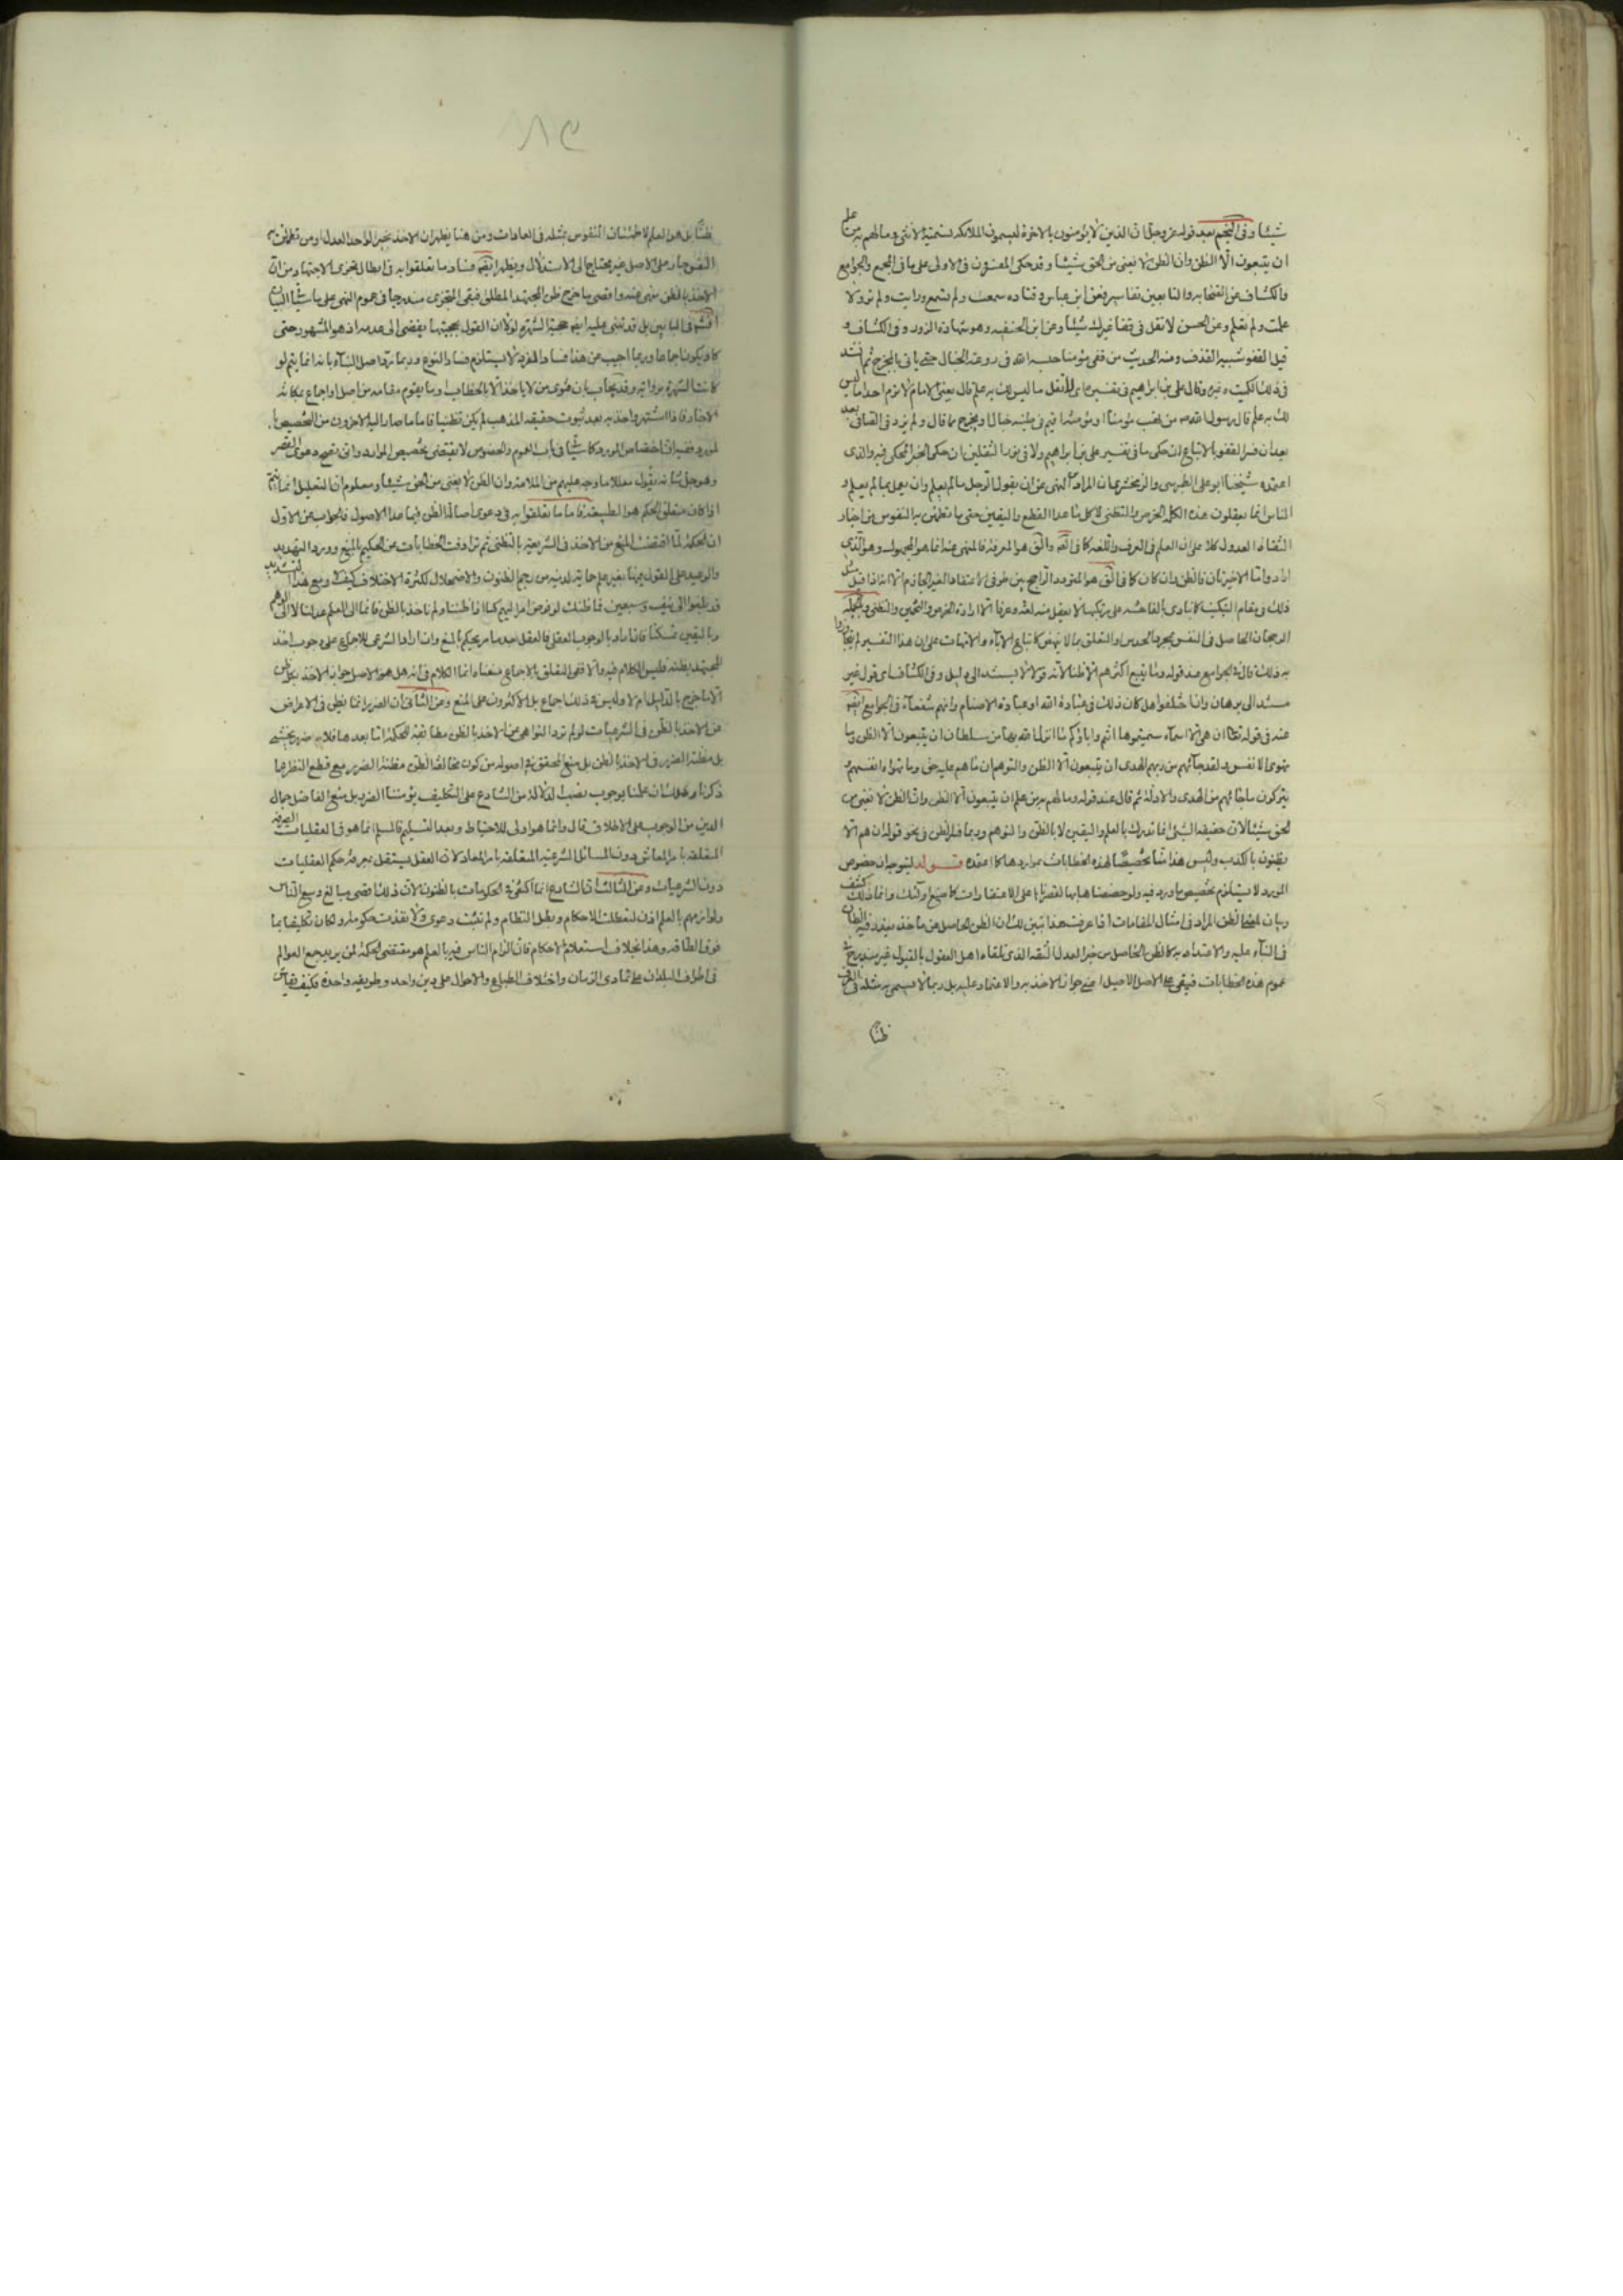 شيئا وفى النجم بعد قوله عز وجل ان الذين لا يؤمنون بالاخرة ليسمون الملائكة تسمية الانثى وما لهم به من علم
ان يتبعون الا الظن وان الظن لا يغنى من الحق شيئا وقد حكى المفسرون فى الاولى على ما فى المجمع والجوامع
والكشاف عن الصحابه والتابعين تفاسير فعن ابن عباس وقتاده سمعت ولم تسمع ورايت ولم تر ولا
علمت ولم تعلم وعن الحسن لا تقل فى قفا غيرك شيئا وعن ابن الحنفيه وهو شهادة الزور وفى الكشاف و
قيل القفو شبيه القذف ومنه الحديث من قفى مؤمنا حبسه الله فى روغة الخبال حتى ياتى بالمخرج ثم انشد
فى ذلك الكميت وغيره وقال على بن ابراهيم فى تفسير لا تقل ما ليس لك به علم قال يعنى الامام لا ترم احدا بما ليس
لك به علم قال رسول الله ص من بهت مؤمنا او مؤمنة اقيم فى طينه خبال او يخرج مما قال ولم يزد فى الصافى بعد
بعد ان فسر القفو بالاتباع ان حكى ما فى تفسير على بن ابراهيم ولا فى نور الثقلين ان حكى الخبر المحكى فيه والذى
اعتمده شيخنا ابو على الطبرسى والزمخشرى ان المراد النهى عن ان يقول الرجل ما لم يعلم وان يعمل بما لم يعلم و
الناس انما يعقلون هذه الكلم الخرص والتظنى لا كل ما عدا القطع واليقين حتى ما تطمئن به النفوس من اخبار
الثقات العدول كلا على ان العلم فى العرف واللغه كما فى هو المعرفة فالمنهى عنه انما هو المجهول وهو الذى
اراد واما الاخيرتان فالظن وان كان كما فى هو التردد الراجح بين طرفى الاعتقاد الغير الجازم الا انه اذا قيل مثل
ذلك فى مقام التبكيت لا يعقل منه لغة وعرفا الا ارادة الخرص والتخمين والتظنى وبالجمله
الرجحان الحاصل فى النفس بمجرد الحدس او التعلق بما لا ينهض كاتباع الآباء والامهات على ان هذا التفسير لم
به ذلك قال فى الجوامع عند قوله وما يتبع اكثرهم الا ظنا لانه قول لا يستند الى دليل وفى الكشاف اى قول غير
مستند الى برهان وانا خلفوا هل كان ذلك فى عبادة الله او عبادة الاصنام وانهم شفعاء فى الجوامع ايضا
عند فى قوله تعالى ان هى الا اسماء سميتموها انتم واباؤكم ما انزل الله بها من سلطان ان يتبعون الا الظن وما
تهوى الانفس ولقد جاءهم من ربهم الهدى ان يتبعون الا الظن والتوهم ان ما هم عليه حق وما تهواه انفسهم و
يتركون ما جائهم من الهدى والادلة ثم قال عند قوله وما لهم به من علم ان يتبعون الا الظن وان الظن لا يغنى من
الحق شيئا لان حقيقه الشئ انما تدرك بالعلم واليقين لا بالظن والتوهم وربما فسر الظن فى نحو قوله ان هم الا
يظنون بالكذب وليس هذا منا تخصيصا لهذه الخطابات بمواردها كما اعتمده قوله ليتوجه ان خصوص
المورد لا يستلزم تخصيص ما ورد فيه ولو خصصناها بها لقصرناها على الاعتقادات كما صنع اولئك وانما ذلك كشف
وبيان لمعنى الظن المراد فى امثال المقامات اذا عرفت هذا تبين لك ان الظن الحاصل من ماخذ
فى البناء عليه والاعتداد به كالظن الحاصل من خبر العدل الثقه الذى تلقاه اهل العقول بالقبول غير مندرج تحت
عموم هذه الخطابات فيبقى على الاصل الاصيل اعنى جواز الاخذ به والاعتماد عليه بل ربما لا يسمى مثله فى العرف
ظنا
ظنا بل هو العلم لاطمئنان النفوس بمثله فى العادات ومن هنا يظهر ان الاخذ بخبر الواحد العدل او من تطمئن به
النفس جار على الاصل غير محتاج الى الاستدلال ويظهر ايضا فساد ما تعلقوا به فى ابطال تجزى الاجتهاد من ان
الاخذ بالظن منهى عنه واقصى ما خرج ظن المجتهد المطلق فبقى المتجزى مندرجا فى عموم النهى على ما شاع البيان
حجية الشهره لولا ان القول بحجيتها يفضى الى عدمه اذ هو المشهور حتى
كاد يكون اجماعا وربما اجيب عن هذا فساد الفرد لا يستلزم فساد النوع وربما رد اصل البناء بانه انما يتم لو
كانت الشهرة وقد يجاب بان هوى من لا ياخذ الا بالخطاب وما يقوم مقامه من اصل او اجماع بمكانة
الاخبار فاذا اشتهر واخذ به بعد ثبوت حقيقه المذهب لم يكن تظنيا فاما ما صار اليه الاخرون من التخصيص
المورد ففيه ان اختصاص المورد كما شاع فى باب العموم والخصوص لا يقتضى تخصيص الوارد وانى تصح دعوى القصر
وهو جل شأنه يقول معللا ما وجه عليهم من الملامة وان الظن لا يغنى من الحق شيئا ومعلوم ان التعليل انما يتم
اذا كان متعلق الحكم هو الطبيعة فاما ما تعلقوا به فى دعوى اصالة الظن فيما عدا الاصول فالجواب عن الاول
ان الحكمة لما اقتضت المنع من الاخذ فى الشريعة بالتظنى ثم ترادفت الخطابات من الحكيم بالمنع وورد التهديد
والوعيد على القول فيها بغير علم حماية لدينه من رجم الظنون والاضمحلال لكثرة الاختلاف كيف ومع هذا التشديد
قد بلغوا الى نيف وسبعين فما ظنك لو فوض امرا اليهم كما اذا ظننا ولم ناخذ بالظن فانما الى العلم عدلنا لا الى الوهم
وباليقين تمسكنا فان اراد بالوجوب العقلى فالعقل بعد ما مر يحكم بالمنع وان اراد الشرعى للاجماع على وجوب اخذ
المجتهد بظنه فليس الكلام فيه والا ففى المتعلق بالاجماع معناه وانما الكلام فى انه هل هو الاصل جواز الاخذ بكل ظن
الا ما خرج بالدليل ام لا وليس فى ذلك اجماع بل الاكثرون على المنع وعن الثانى ان الضرر انما يظن فى الاعراض
عن الاخذ بالظن فى الشرعيات لو لم ترد النواهى عن الاخذ بالظن مطابقة للحكمة اما بعدها فلا ضرر يخشى
بل مظنة الضرر فى الاخذ بالظن بل منع المحقق فى اصوله من كون مخالفة الظن مظنة الضرر مع قطع النظر عما
ذكرنا وذلك ان علمنا بوجوب نصب الدلالة من الشارع على التكليف يؤمننا الضرر بل منع الفاضل جمال
الدين من الوجوب على الاطلاق قال وانما هو اولى للاحتياط وبعد التسليم فالمسلم انما هو فى العقليات الصرفه
المتعلقة بامر المعاش دون المسائل الشرعيه المتعلقه بامر المعاد لان العقل يستقل بمعرفة حكم العقليات
دون الشرعيات وعن الثالث ان الشارع انما اكتفى فى الحكومات بالظنون لان ذلك اقصى مبالغ وسع الناس
ولو الزمهم بالعلم اذن لتعطلت الاحكام وبطل النظام ولم تثبت دعوى ولا نفذت حكومة وكان تكليفا بما
فوق الطاقه وهذا بخلاف استعلام الاحكام فان الزام الناس فيه بالعلم هو مقتضى الحكمة لمن يريد جمع العوالم
فى اطراف البلدان على تمادى الزمان واختلاف الطباع والاحوال على دين واحد وطريقه واحدة فكيف يقاس